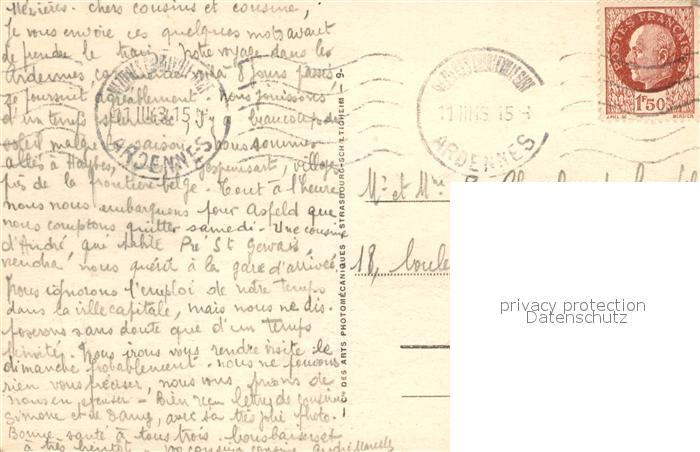 Mézières. Chers cousins et cousine,
Je vous envoie ces quelques mots avant
de prendre le train. Notre voyage dans les
Ardennes commencé voilà 8 jours passés,
se poursuit agréablement. Nous jouissons
d'un temps splendide, beaucoup de
soleil malgré saison. Nous sommes
allés à Haybes, Gespunsart, villages
près de la frontière belge. Tout à l'heure
nous nous embarquons pour Asfeld que
nous comptons quitter samedi. Une cousine
d'André, qui habite Pré St Gervais,
viendra nous quérir à la gare d'arrivée.
Nous ignorons l'emploi de notre temps
dans la ville capitale, mais nous ne dis-
poserons sans doute que d'un temps
limité. Nous irons vous rendre visite le
dimanche probablement. Nous ne pouvons
rien vous préciser, nous vous prions de
nous en excuser - Bien reçu lettres de cousine
Simone et de Dany, avec sa très jolie photo.
Bonne santé à tous trois. Bons baisers et
à très bientôt - vos cousin cousine André Marcelle
Cie DES ARTS PHOTOMÉCANIQUES - STRASBOURG-SCHILTIGHEIM - 9-
ARDENNES
ARDENNES
POSTES FRANÇAISES
1F50
Mr et Mme
18, boule
privacy protection
Datenschutz